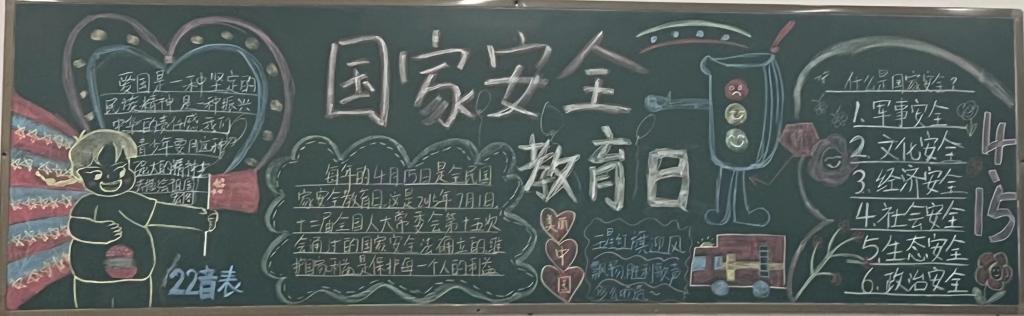 国家安全
教育日
爱国是一种坚定的
民族精神是一种振兴
中华的责任感 我们
青少年要用这种
强大的精神去
22音表
每年的4月15日是全民国
家安全教育日,这是2015年7月1日
十二届全国人大常委会第十五次
会议
的国家安全法确立的
是保护每一个人的利益
美丽
中
国
五星红旗迎风
歌声
什么是国家安全?
1. 军事安全
2. 文化安全
3. 经济安全
4. 社会安全
5. 生态安全
6. 政治安全
4.15